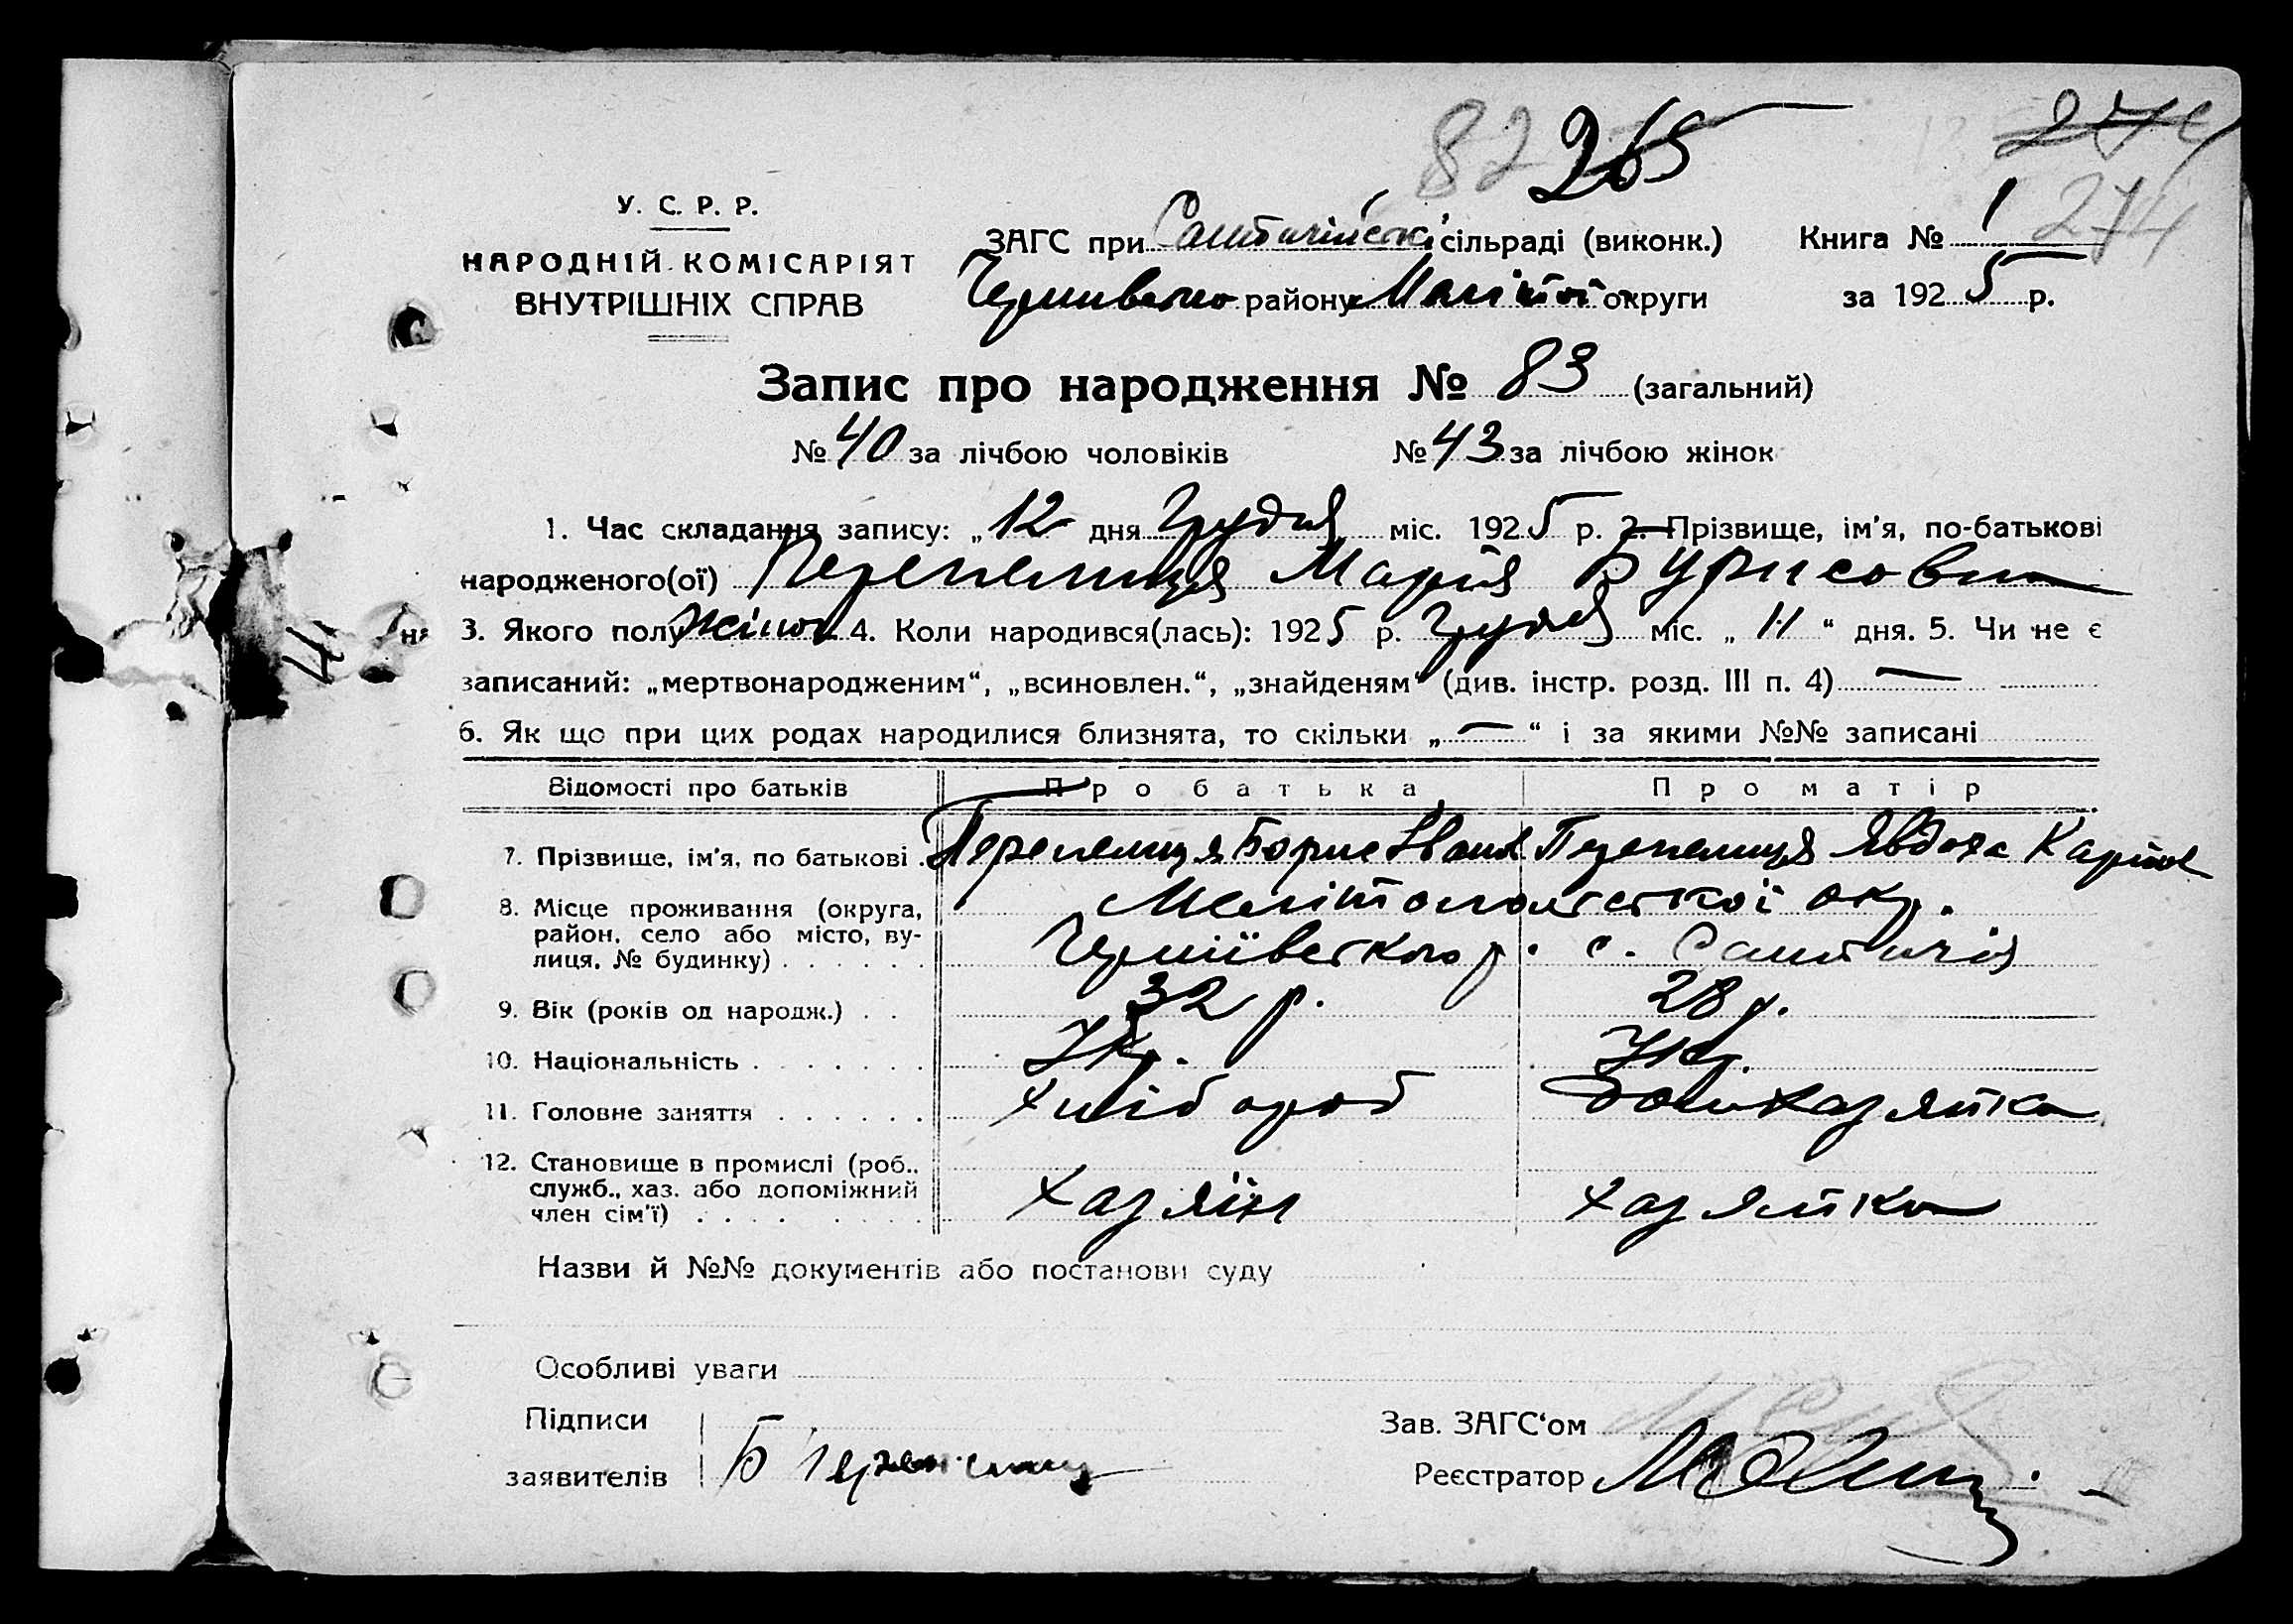 82 265 274
274
У. С. Р. Р.
НАРОДНІЙ КОМІСАРІЯТ
ВНУТРІШНІХ СПРАВ
ЗАГС при сільраді (виконк.) Книга № 1
району Меліт округи за 1925 р.
Запис про народження № 83 (загальний)
№ 40 за лічбою чоловіків № 43 за лічбою жінок
1. Час складання запису: „12 дня Грудня міс. 1925 р. 2. Прізвище, ім'я, по-батькові
народженого(ої) Перепелиця Марія Бурисовна
3. Якого полу жіноч 4. Коли народився(лась): 1925 р. Грудня міс. „11“ дня. 5. Чи не є
записаний: „мертвонародженим“, „всиновлен.“, „знайденям“ (див. інстр. розд. III п. 4) —
6. Як що при цих родах народилися близнята, то скільки „—“ і за якими №№ записані
Відомості про батьків Про батька Про матір
7. Прізвище, ім'я, по батькові . Перепелиця Борис Іван Перепелиця Явдоха Карпов
8. Місце проживання (округа, Мелітопольської окр.
район, село або місто, ву-
лиця, № будинку) . . . . . . р. с.
9. Вік (років од народж.) . . 32 р. 28 р.
10. Національність . . . . . . . Укр. Укр.
11. Головне заняття . . . . . . Хлібороб Домхазяйка
12. Становище в промислі (роб.,
служб., хаз. або допоміжний
член сім'ї) . . . . . . . . . Хазяїн Хазяйка
Назви й №№ документів або постанови суду
Особливі уваги
Підписи
заявителів Б Перепелиця
Зав. ЗАГС‘ом
Реєстратор